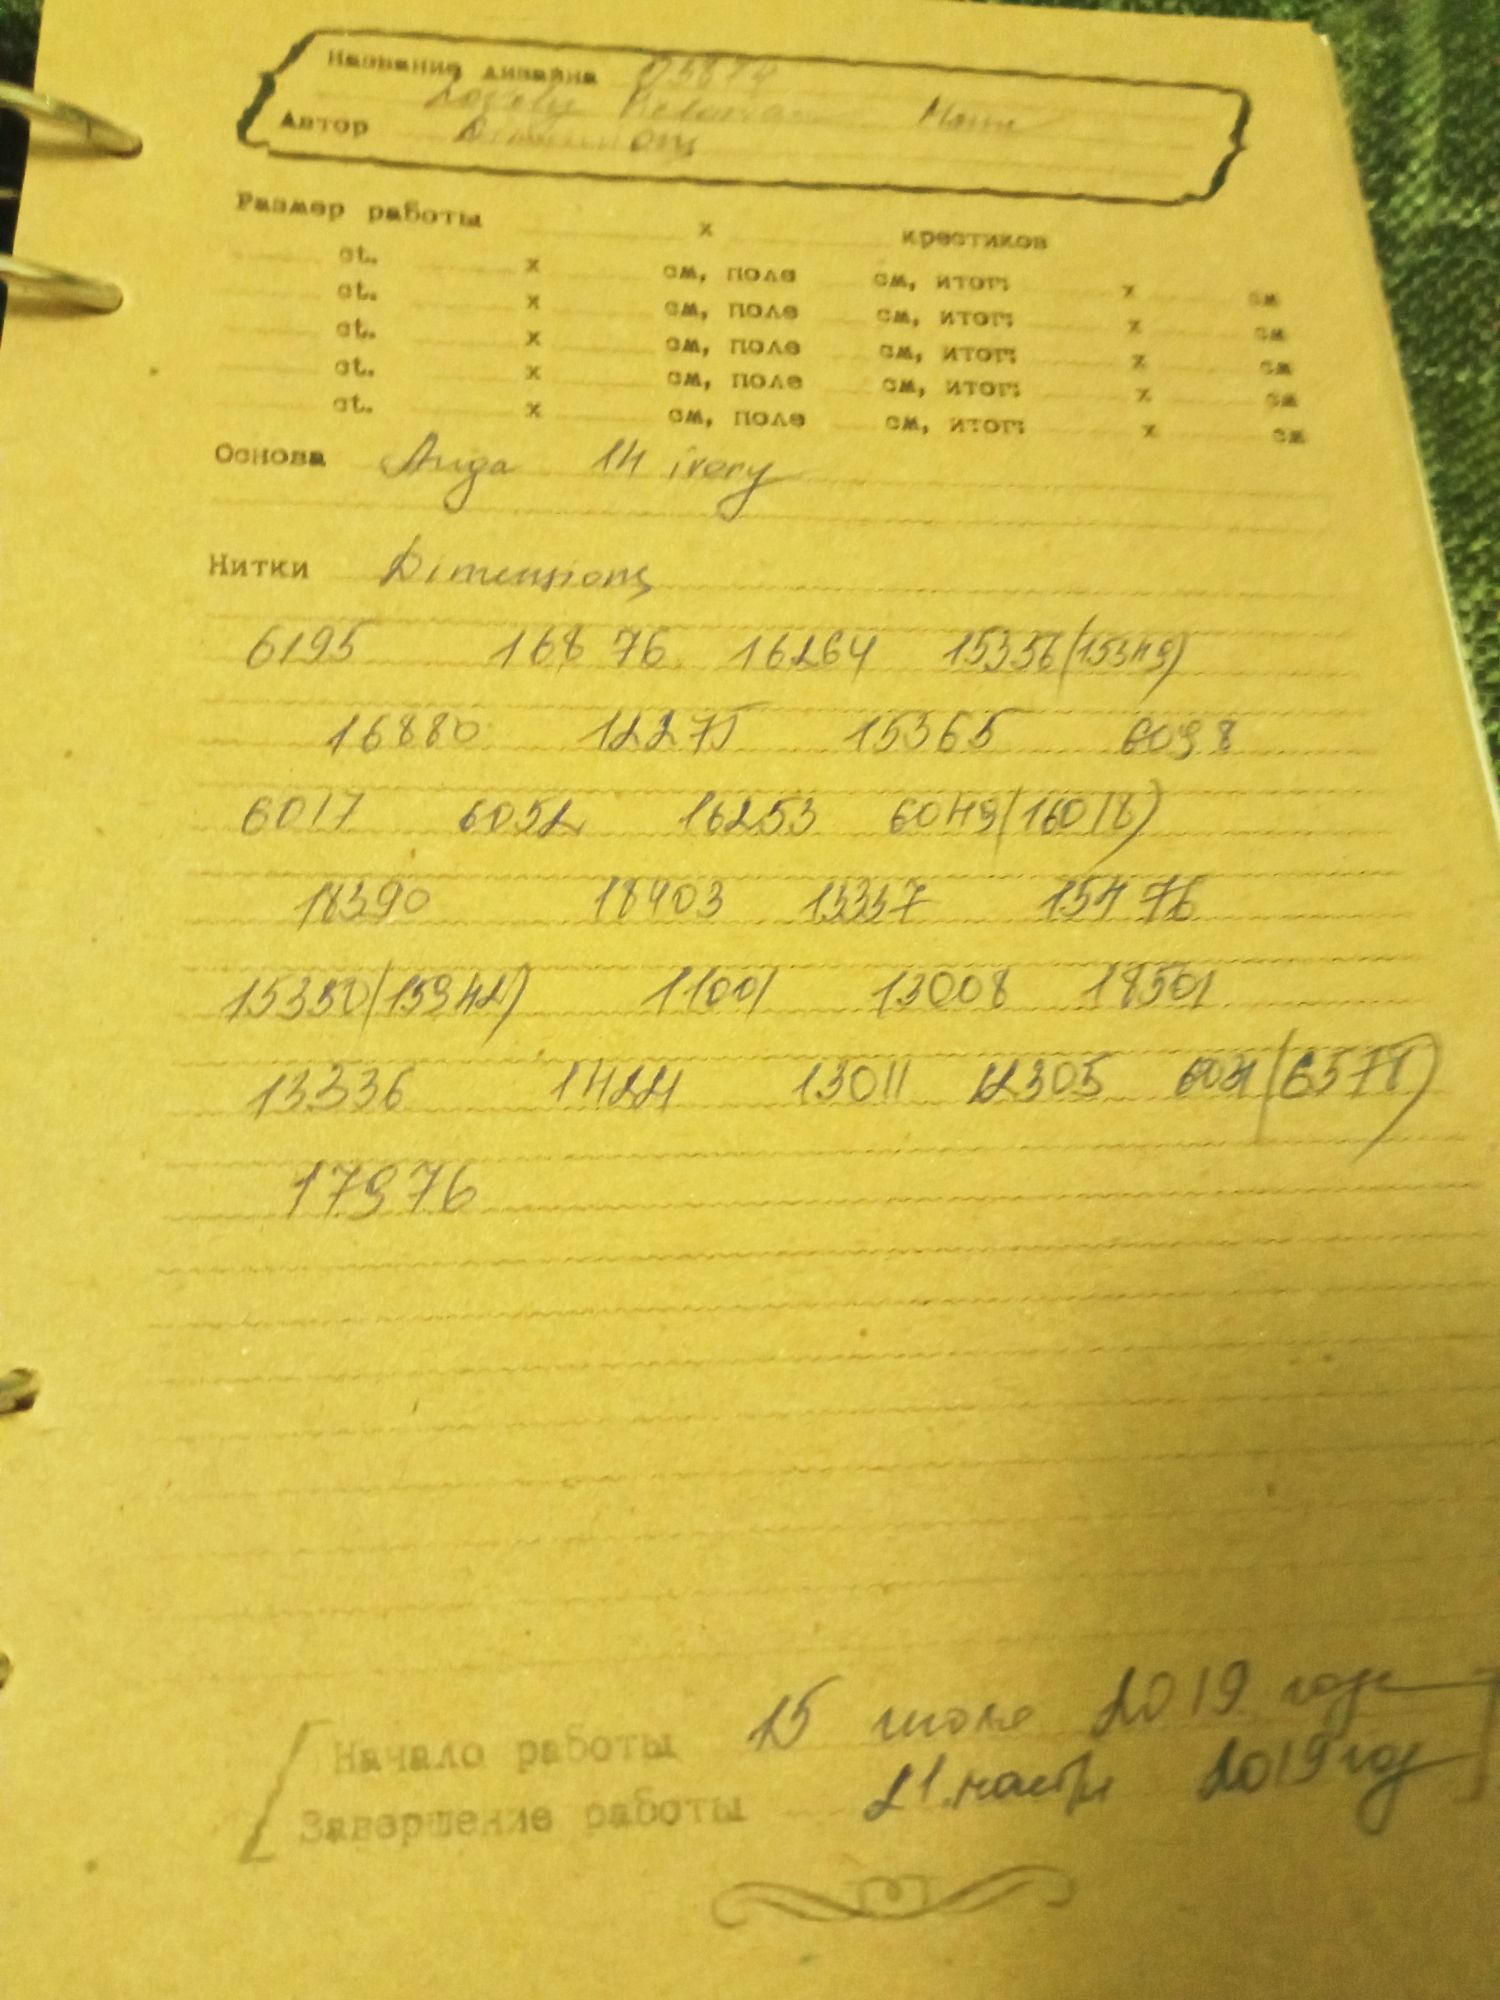 Название дизайна
Автор Dimensions
Размер работы x крестиков
ct. x см, поле см, итог: x см
ct. x см, поле см, итог: x см
ct. x см, поле см, итог: x см
ct. x см, поле см, итог: x см
ct. x см, поле см, итог: x см
Основа Аида 14 ivory
Нитки Dimensions
6195 16876 16264 15356 (15349)
16880 12275 15365 6098
6017 6052 16253 6049 (16018)
18390 18403 13337 15476
15350 (15942) 11001 13008 18501
13336 13011 12305
17976
Начало работы 15 июля 2019 года
Завершение работы 2019